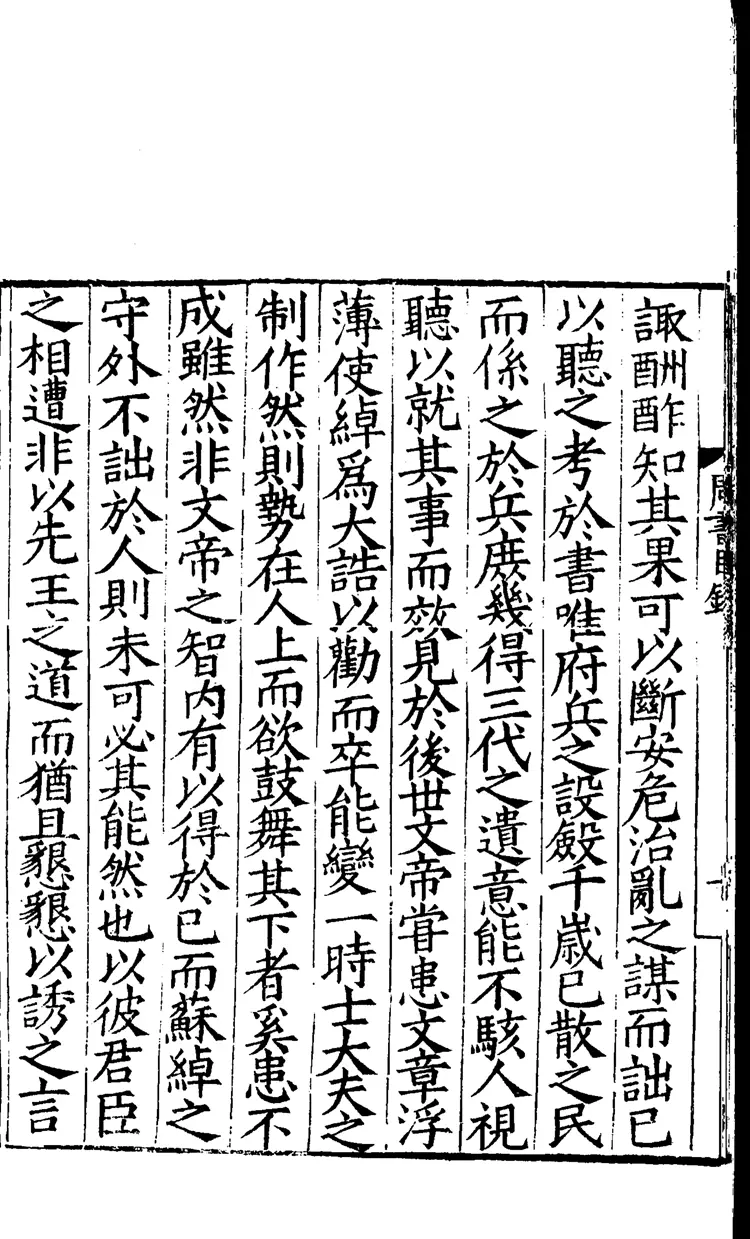 諏酬酢知其果可以斷安危治亂之謀而詘已
以聽之考於書唯府兵之設斂千歲已散之民
而係之於兵庻幾得三代之遺意能不駭人視
聽以就其事而效見於後世文帝甞患文章浮
薄使綽爲大誥以勸而卒能變一時士大夫之
制作然則勢在人上而欲鼓舞其下者奚患不
成雖然非文帝之智内有以得於已而蘇綽之
守外不詘於人則未可必其能然也以彼君臣
之相遭非以先王之道而猶且懇懇以誘之言
周書目錄
一